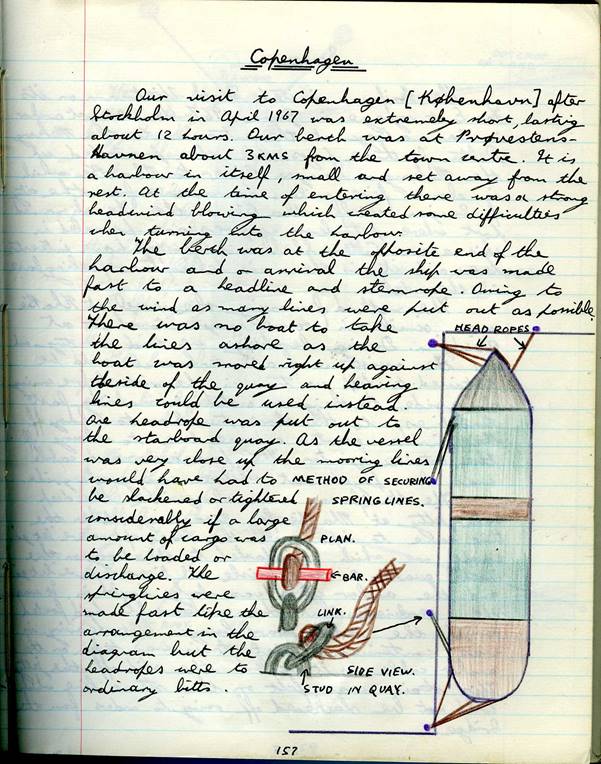 Copenhagen
Our visit to Copenhagen [København] after
Stockholm in April 1967 was extremely short, lasting
about 12 hours. Our berth was at Prøvestens-
Havnen about 3KMS from the town centre. It is
a harbour in itself, small and set away from the
rest. At the time of entering there was a strong
headwind blowing which created some difficulties
when turning into the harbour.
The berth was at the opposite end of the
harbour and on arrival the ship was made
fast to a headline and sternrope. Owing to
the wind as many lines were put out as possible.
There was no boat to take
the lines ashore as the
boat was moved right up against
the side of the quay and heaving
lines could be used instead.
One headrope was put out to
the starboard quay. As the vessel
was very close up the mooring lines
would have had to
be slackened or tightened
considerably if a large
amount of cargo was
to be loaded or
discharge. The
springlines were
made fast like the
arrangement in the
diagram but the
headropes were to
ordinary bitts.
HEAD ROPES
METHOD OF SECURING
SPRING LINES.
PLAN.
BAR.
LINK.
SIDE VIEW.
STUD IN QUAY.
157